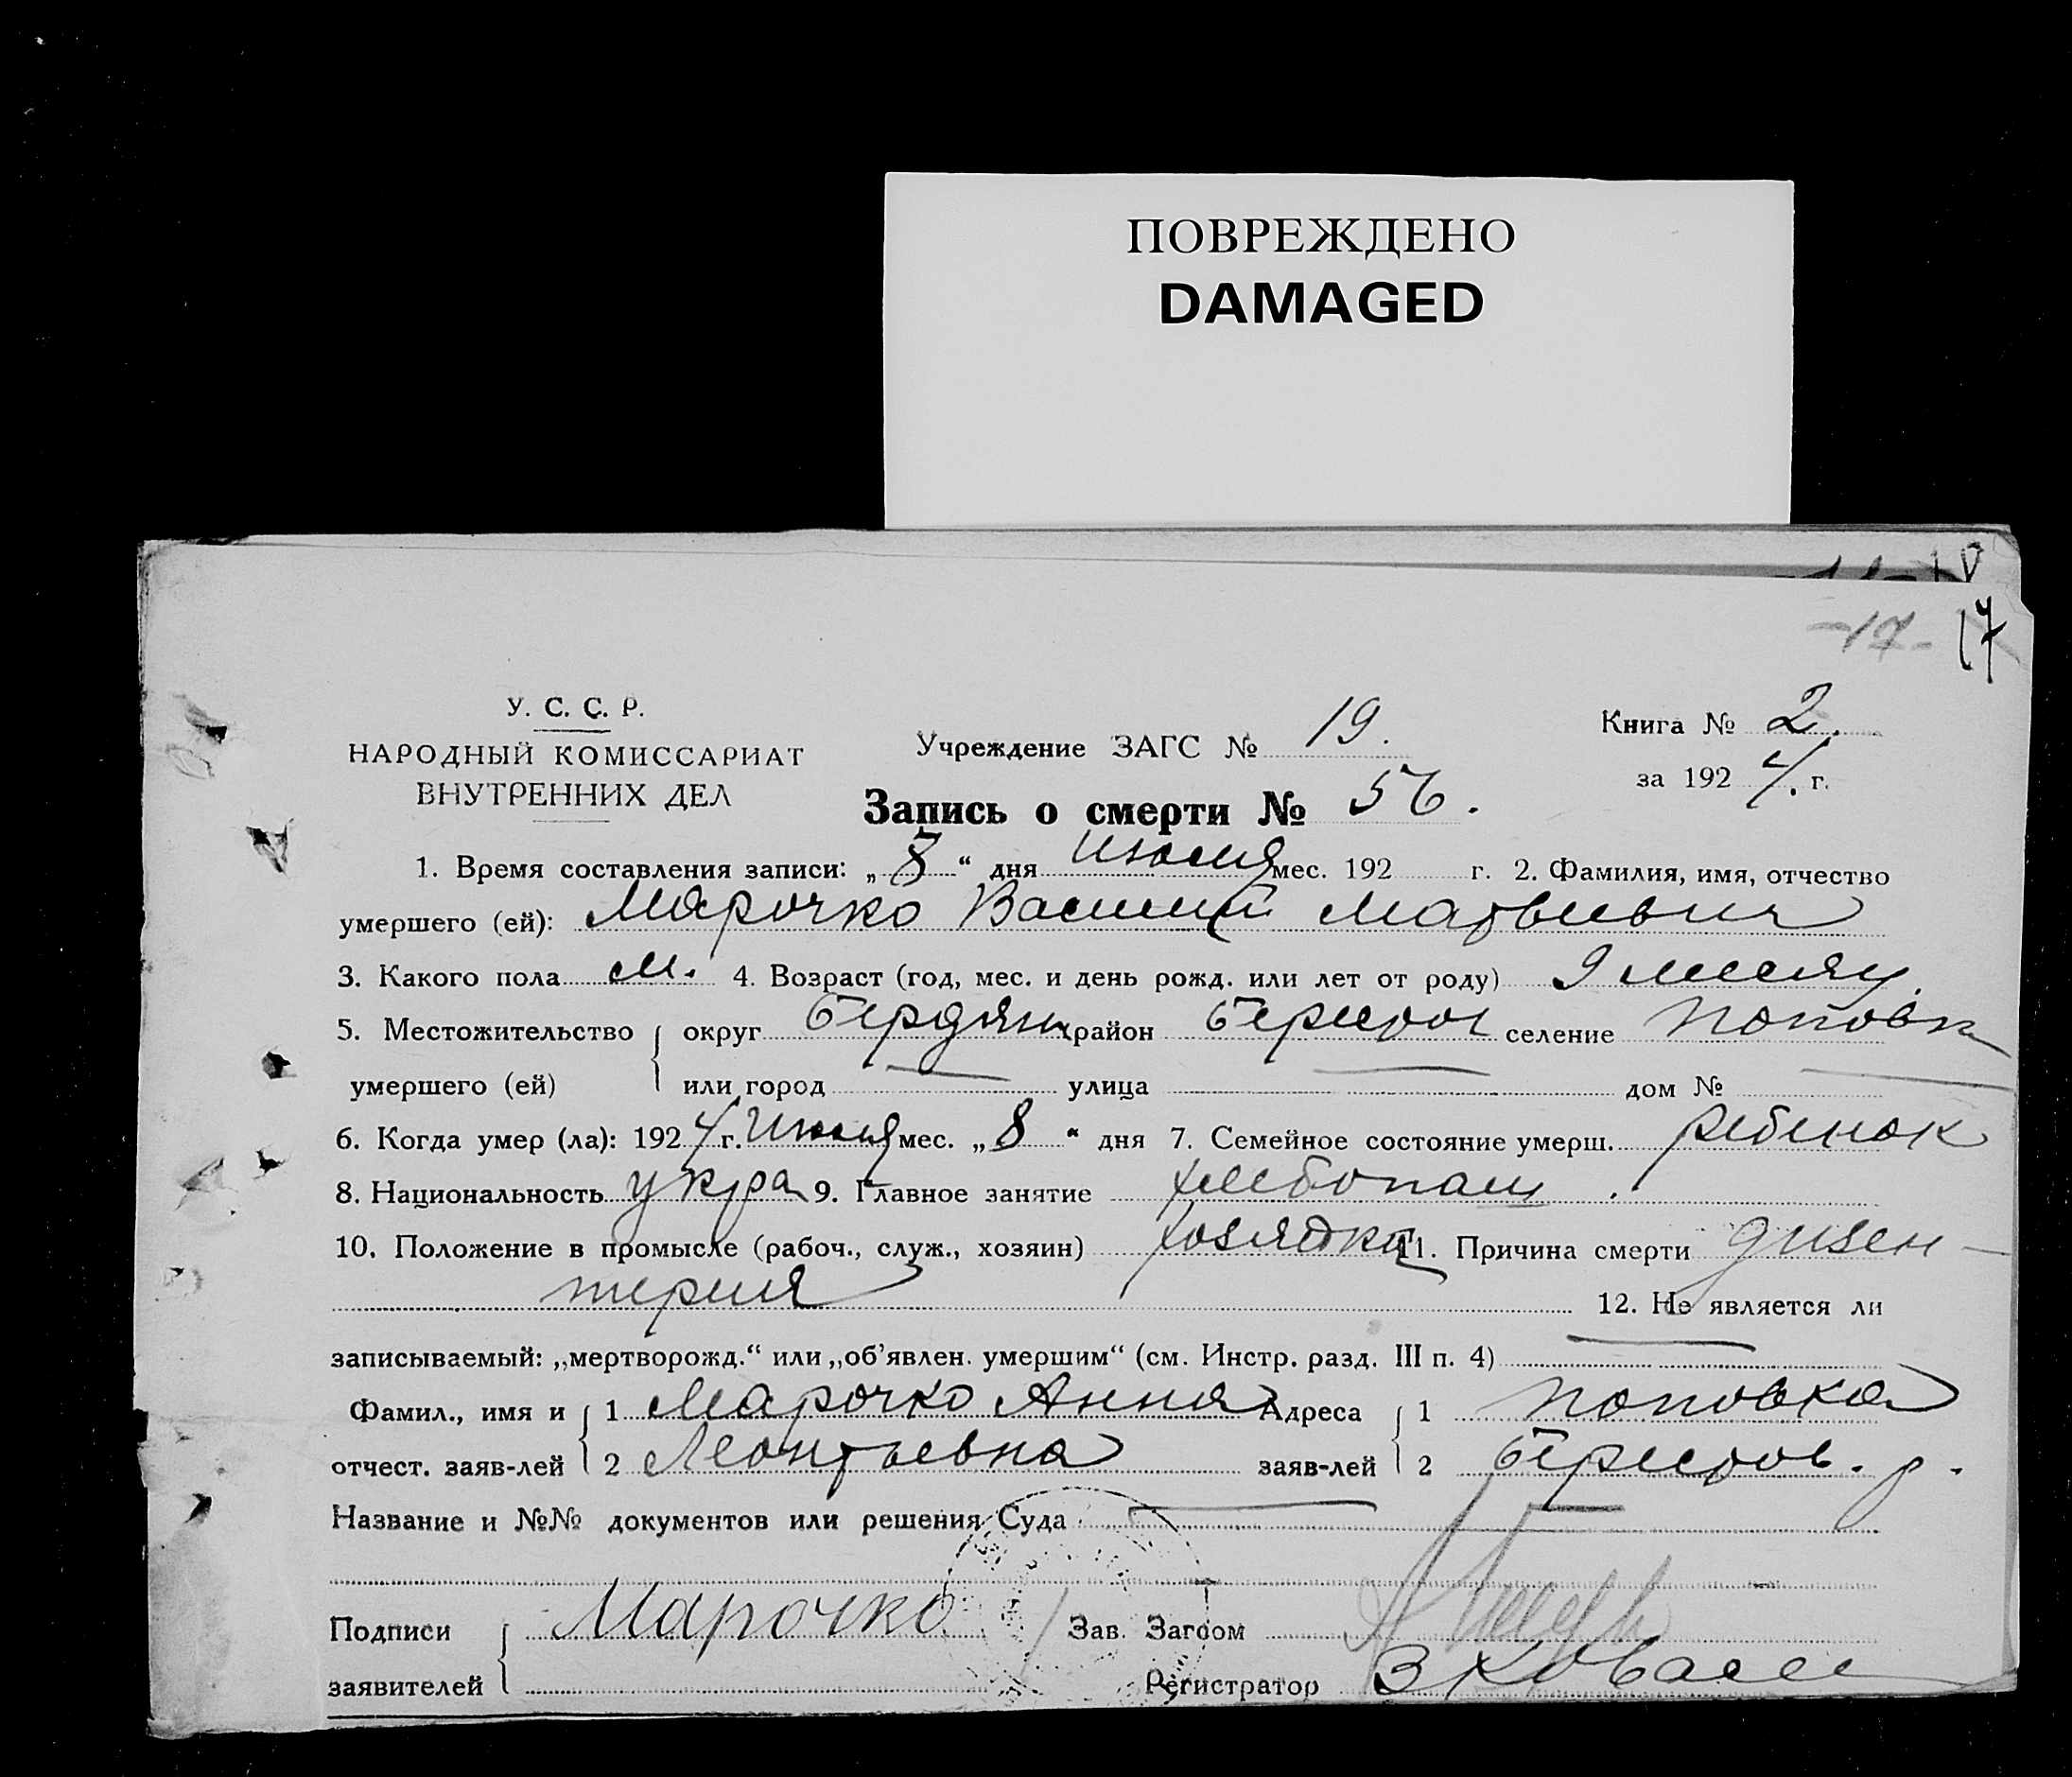 ПОВРЕЖДЕНО
DAMAGED
-17- 17
У. С. С. Р.
НАРОДНЫЙ КОМИССАРИАТ
ВНУТРЕННИХ ДЕЛ
Учреждение ЗАГС № 19.
Книга № 2.
за 1924. г.
Запись о смерти № 56.
1. Время составления записи: „8“ дня Июля мес. 192 г. 2. Фамилия, имя, отчество
умершего (ей): Марочко Василий Матвиевич
3. Какого пола м. 4. Возраст (год, мес. и день рожд. или лет от роду) 9 месяц.
5. Местожительство округ Бердянк район Берестов селение Поповк
умершего (ей) или город — улица — дом № —
6. Когда умер (ла): 1924 г. Июля мес. „8“ дня 7. Семейное состояние умерш. ребенок
8. Национальность укра 9. Главное занятие хлебопаш.
10. Положение в промысле (рабоч., служ., хозяин) 11. Причина смерти дизен-
терия 12. Не является ли
записываемый: „мертворожд.“ или „об’явлен. умершим“ (см. Инстр. разд. III п. 4) —
Фамил., имя и 1 Марочко Анна Адреса 1 Поповка
отчест. заяв-лей 2 Леонтьевна заяв-лей 2 Берестов. р.
Название и №№ документов или решения Суда —
Подписи Марочко Зав. Загсом
заявителей Регистратор